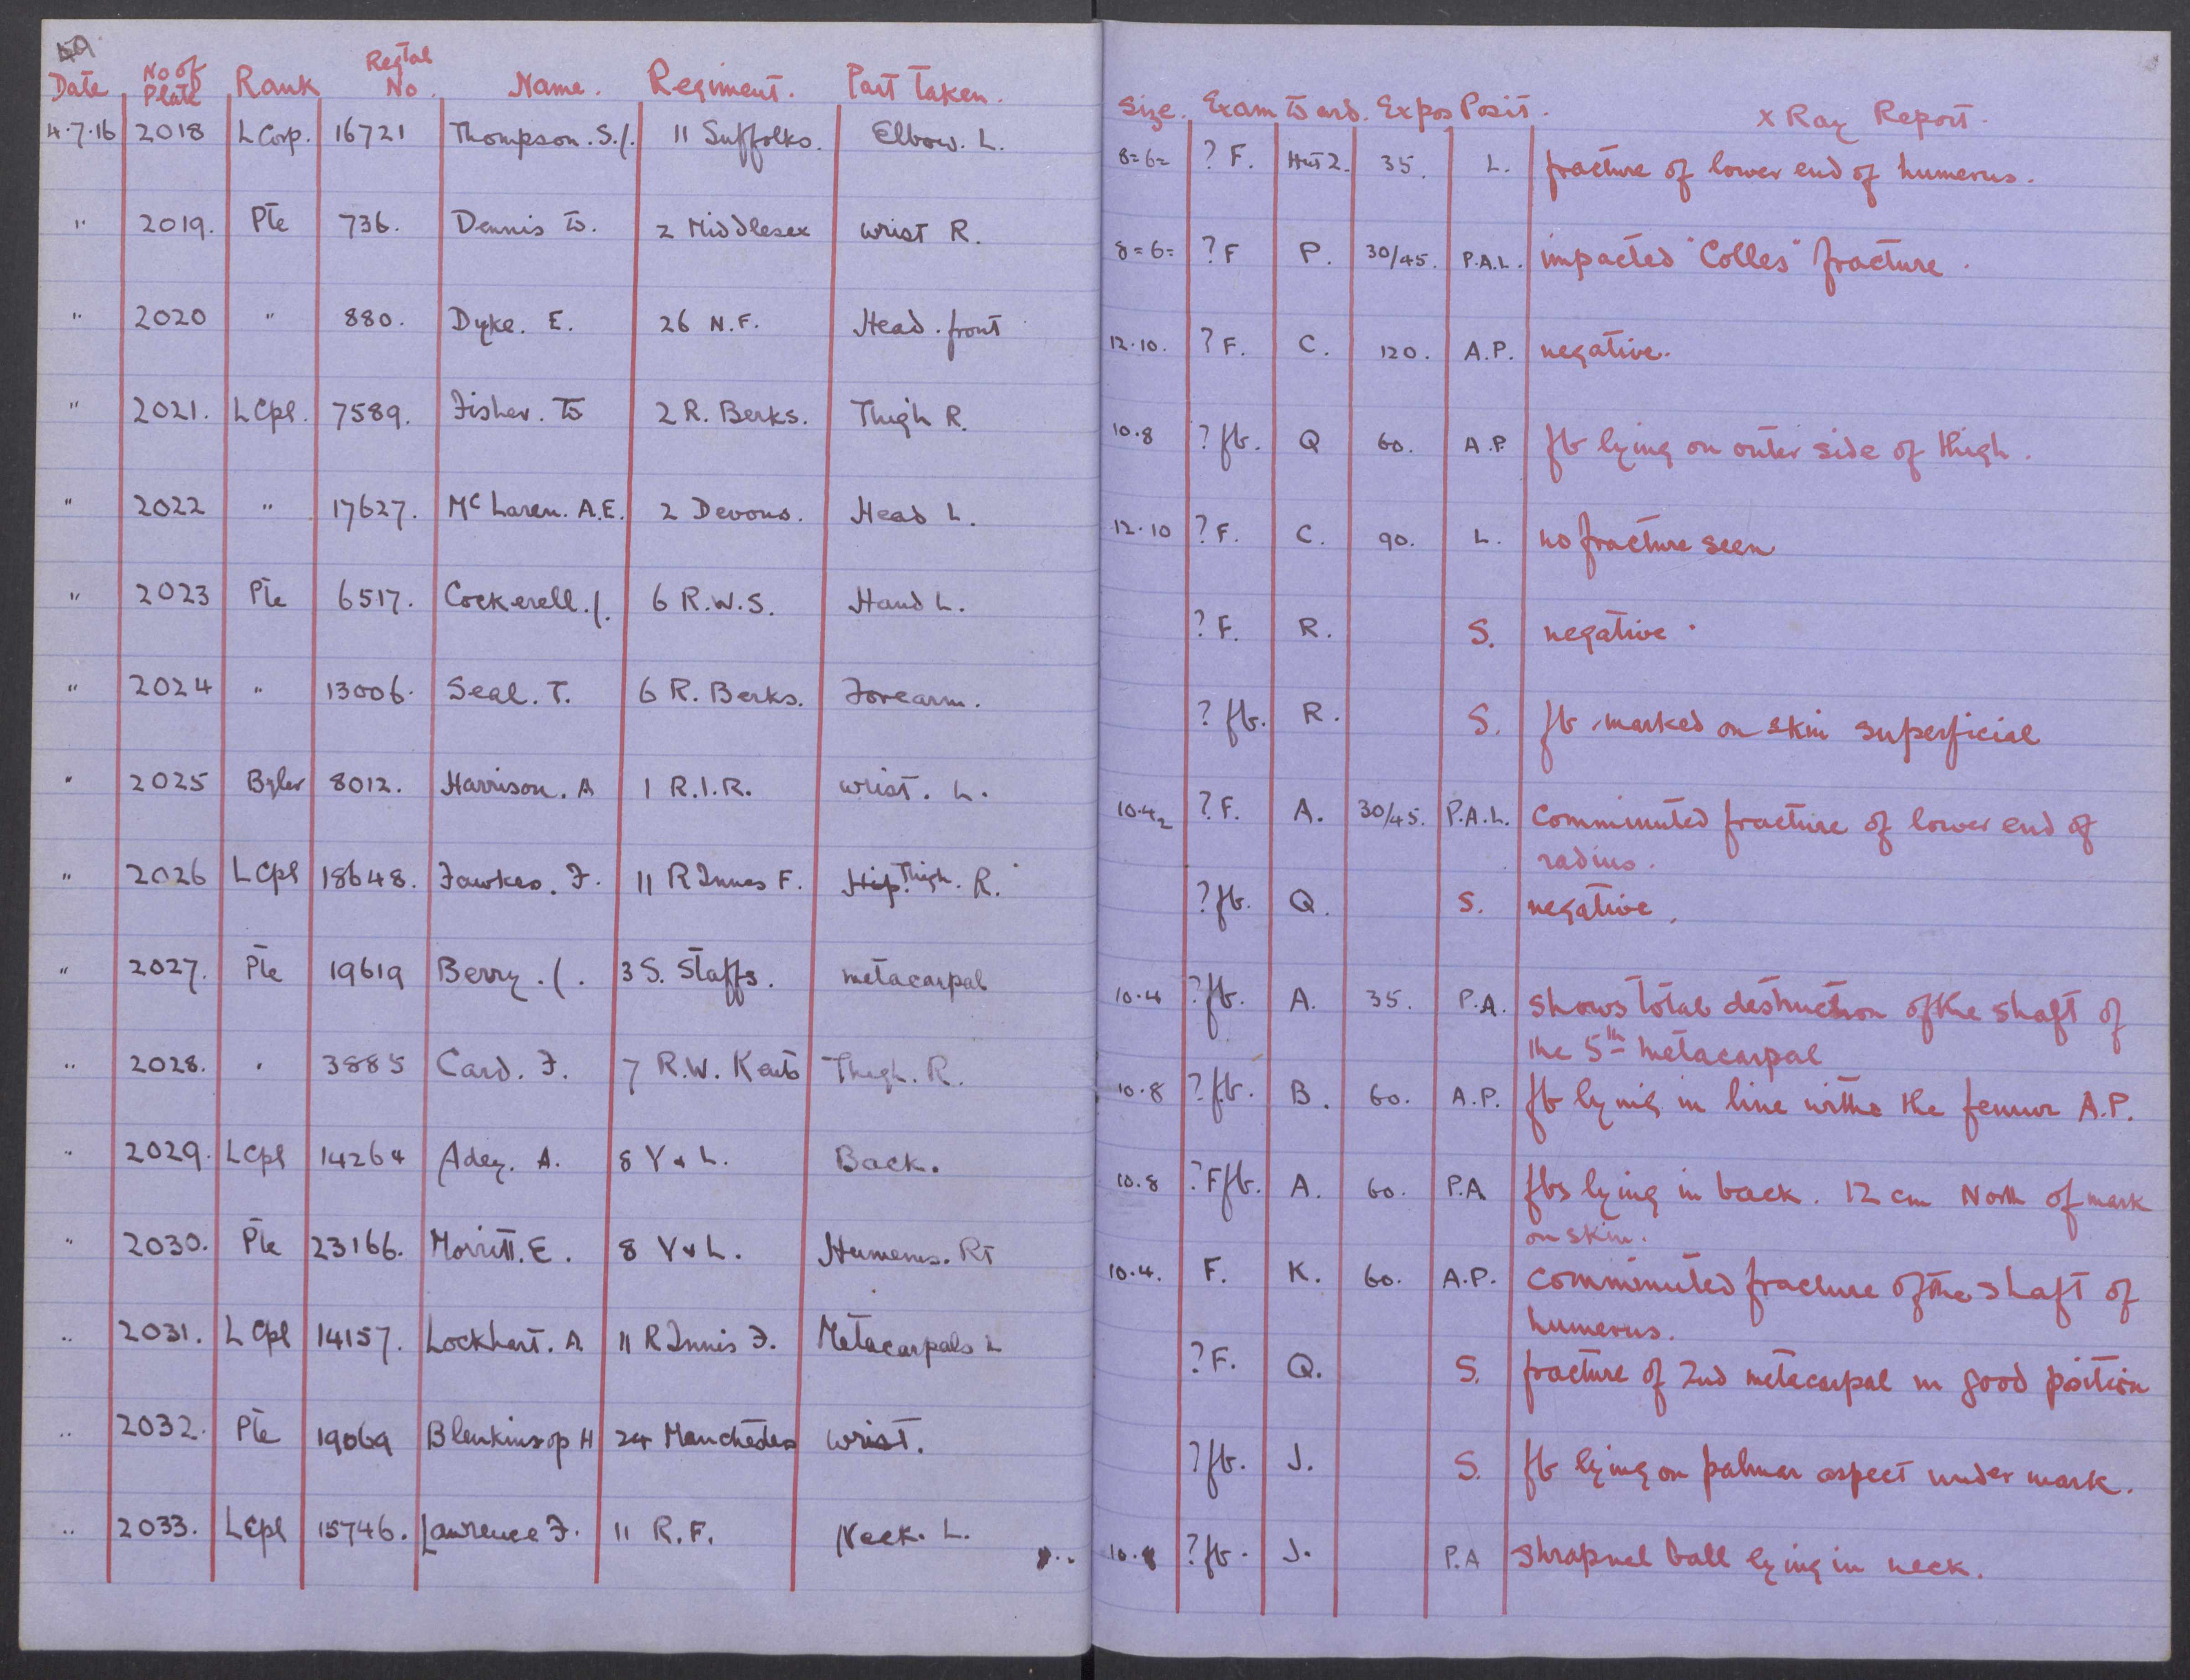 49
Date No of Plate Rank Regtal No. Name. Regiment. Part Taken.
4.7.16 2018 L Corp. 16721 Thompson. S.J. 11 Suffolks. Elbow. L.
" 2019. Pte 736. Dennis W. 2 Middlesex wrist R.
" 2020 " 880. Dyke. E. 26 N.F. Head. front
" 2021. L Cpl. 7589. Fisher. W 2 R. Berks. Thigh R.
" 2022 " 17627. McLaren. A.E. 2 Devons. Head L.
" 2023 Pte 6517. Cockerell. J. 6 R.W.S. Hand L.
" 2024 " 13006. Seal. T. 6 R. Berks. Forearm.
" 2025 Bgler 8012. Harrison. A 1 R.I.R. wrist. L.
" 2026 L Cpl 18648. Fawkes. F. 11 R Innes F. Hip. Thigh. R.
" 2027. Pte 19619 Berry. J. 3 S. Staffs. metacarpal
" 2028. " 3885 Card. F. 7 R.W. Kents Thigh. R.
" 2029. L Cpl 14264 Adey. A. 8 Y & L. Back.
" 2030. Pte 23166. Morritt. E. 8 Y & L. Humerus. Rt
" 2031. L Cpl 14157. Lockhart. A 11 R Innis F. Metacarpals L
" 2032. Pte 19069 Blenkinsop H 24 Manchester wrist.
" 2033. L Cpl 15746. Lawrence F. 11 R.F. Neck. L.
Size. Exam Ward. Expos Posit. X Ray Report.
8=6= ? F. Hut 2. 35. L. fracture of lower end of humerus.
8=6= ? F P. 30/45. P.A.L. impacted "Colles" fracture.
12.10. ? F. C. 120. A.P. negative.
10.8 ? fb. Q 60. A.P fb lying on outer side of thigh.
12.10 ? F. C. 90. L. no fracture seen
? F. R. S. negative.
? fb. R. S. fb marked on skin superficial
10.4 2 ? F. A. 30/45. P.A.L. Comminuted fracture of lower end of
radius.
? fb. Q. S. negative.
10.4 ? fb. A. 35. P.A. shows total destruction of the shaft of
the 5th metacarpal
10.8 ? fb. B. 60. A.P. fb lying in line with the femur A.P.
10.8 ? F fb. A. 60. P.A fbs lying in back. 12 cm North of mark
on skin.
10.4. F. K. 60. A.P. Comminuted fracture of the shaft of
humerus.
? F. Q. S. fracture of 2nd metacarpal in good position
? fb. J. S. fb lying on palmar aspect under mark.
10.8 ? fb. J. P.A shrapnel ball lying in neck.